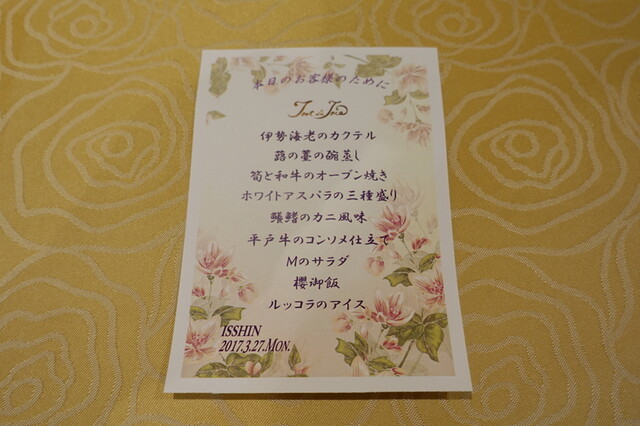 本日のお客様のために
伊勢海老のカクテル
蕗の薹の碗蒸し
筍と和牛のオーブン焼き
ホワイトアスパラの三種盛り
のカニ風味
平戸牛のコンソメ仕立て
Mのサラダ
櫻御飯
ルッコラのアイス
ISSHIN
2017.3.27.MON.